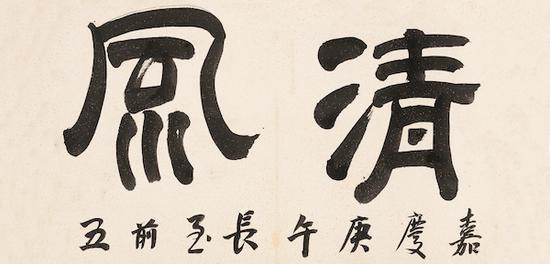 清風
嘉慶庚午長至前五